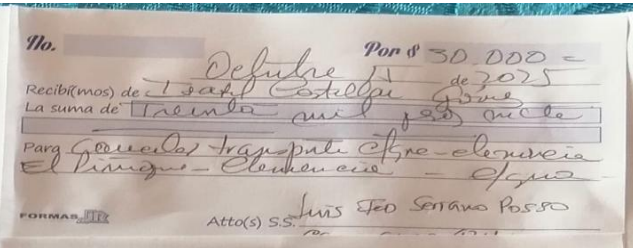 No. Por $ 30.000 =
Octubre de 2025
Recibí(mos) de Isabel Castellar
La suma de Treinta mil pesos m/cte
Para Cancelar transporte c/gna - clemencia
El - Clemencia - c/gna
FORMAS Atto(s) S.S. Luis Serrano Posso